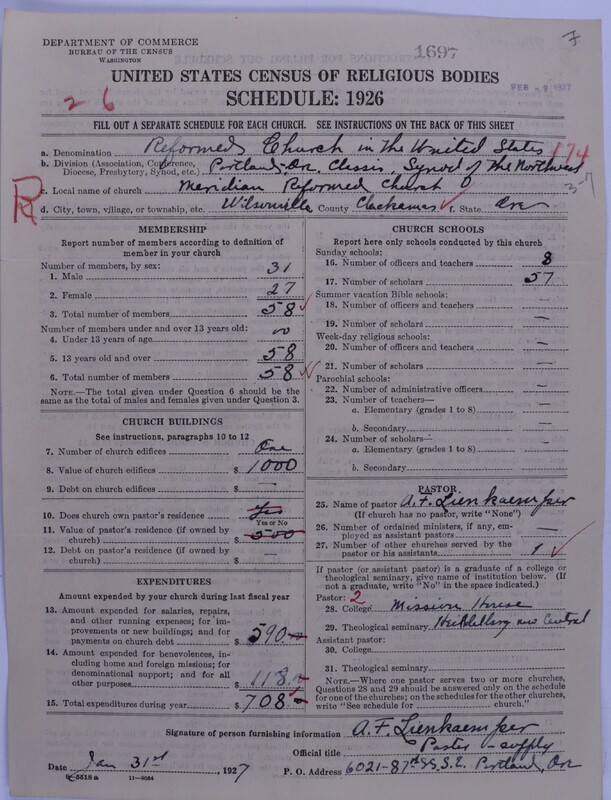 DEPARTMENT OF COMMERCE
BUREAU OF THE CENSUS
WASHINGTON
1697
7
UNITED STATES CENSUS OF RELIGIOUS BODIES
FEB - 9 1927
SCHEDULE: 1926
2 6
FILL OUT A SEPARATE SCHEDULE FOR EACH CHURCH. SEE INSTRUCTIONS ON THE BACK OF THIS SHEET
a. Denomination Reformed Church in the United States 174
b. Division (Association, Conference, Diocese, Presbytery, Synod, etc.) Portland-Ore. Classis, Synod of the Northwest
c. Local name of church Meridian Reformed Church
d. City, town, village, or township, etc. Wilsonville County Clackamas f. State Ore
R
MEMBERSHIP
Report number of members according to definition of
member in your church
Number of members, by sex:
1. Male 31
2. Female 27
3. Total number of members 58
Number of members under and over 13 years old:
4. Under 13 years of age
5. 13 years old and over 58
6. Total number of members 58
NOTE.—The total given under Question 6 should be the
same as the total of males and females given under Question 3.
CHURCH BUILDINGS
See instructions, paragraphs 10 to 12
7. Number of church edifices One
8. Value of church edifices $ 1000
9. Debt on church edifices $ —
10. Does church own pastor's residence Yes
Yes or No
11. Value of pastor's residence (if owned by
church) $ 500
12. Debt on pastor's residence (if owned by
church) $ —
EXPENDITURES
Amount expended by your church during last fiscal year
13. Amount expended for salaries, repairs,
and other running expenses; for im-
provements or new buildings; and for
payments on church debt $ 590
14. Amount expended for benevolences, in-
cluding home and foreign missions; for
denominational support; and for all
other purposes $ 118
15. Total expenditures during year $ 708
CHURCH SCHOOLS
Report here only schools conducted by this church
Sunday schools:
16. Number of officers and teachers 8
17. Number of scholars 57
Summer vacation Bible schools:
18. Number of officers and teachers —
19. Number of scholars —
Week-day religious schools:
20. Number of officers and teachers —
21. Number of scholars —
Parochial schools:
22. Number of administrative officers —
23. Number of teachers—
a. Elementary (grades 1 to 8) —
b. Secondary —
24. Number of scholars—
a. Elementary (grades 1 to 8) —
b. Secondary —
PASTOR
25. Name of pastor A. F. Lienkaemper
(If church has no pastor, write "None")
26. Number of ordained ministers, if any, em-
ployed as assistant pastors —
27. Number of other churches served by the
pastor or his assistants 1
If pastor (or assistant pastor) is a graduate of a college or
theological seminary, give name of institution below. (If
not a graduate, write "No" in the space indicated.)
Pastor: 2
28. College Mission House
29. Theological seminary Heidelberg now Central
Assistant pastor:
30. College
31. Theological seminary
NOTE.—Where one pastor serves two or more churches,
Questions 28 and 29 should be answered only on the schedule
for one of the churches; on the schedules for the other churches,
write "See schedule for ________ church."
Signature of person furnishing information A. F. Lienkaemper
Official title Pastor - supply
Date Jan 31st, 1927 P. O. Address 6021-87th St S.E. Portland, Ore
11-9064